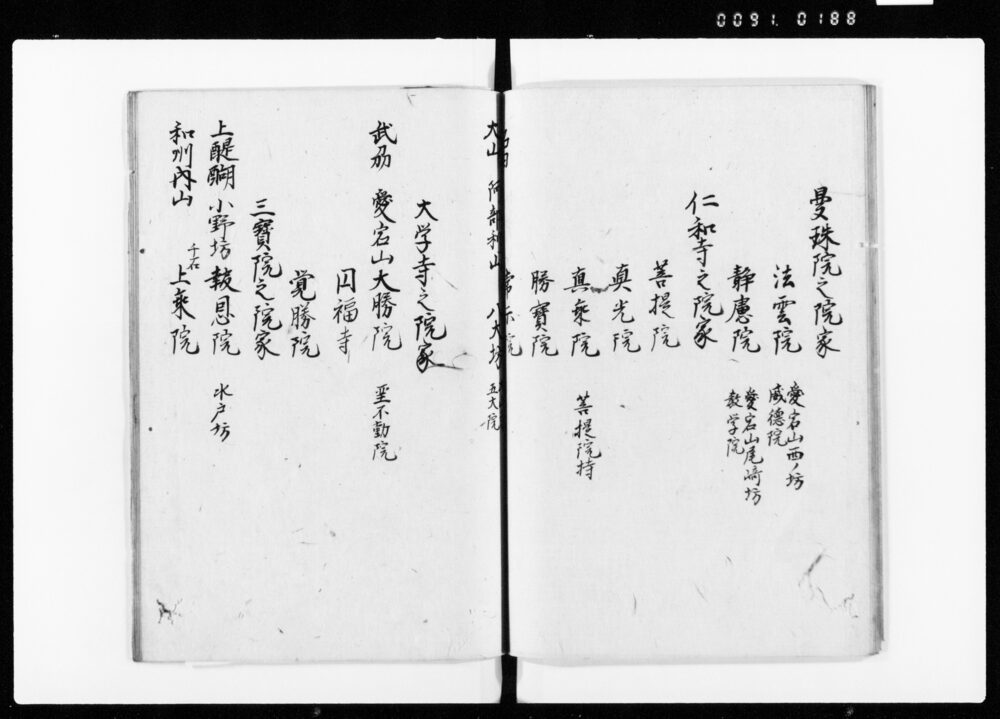 0091.0188
曼珠院之院家
法雲院 愛宕山西ノ坊
威德院
静慮院 愛宕山尾崎坊
教学院
仁和寺之院家
菩提院
真光院
真乗院 菩提院持
勝寶院
大山 八大坊 五大院
大学寺之院家
武刕 愛宕山大勝院 不動院
円福寺
覚勝院
三寳院之院家
上醍醐 小野坊 報恩院 水戸坊
和州内山 千石 上乗院